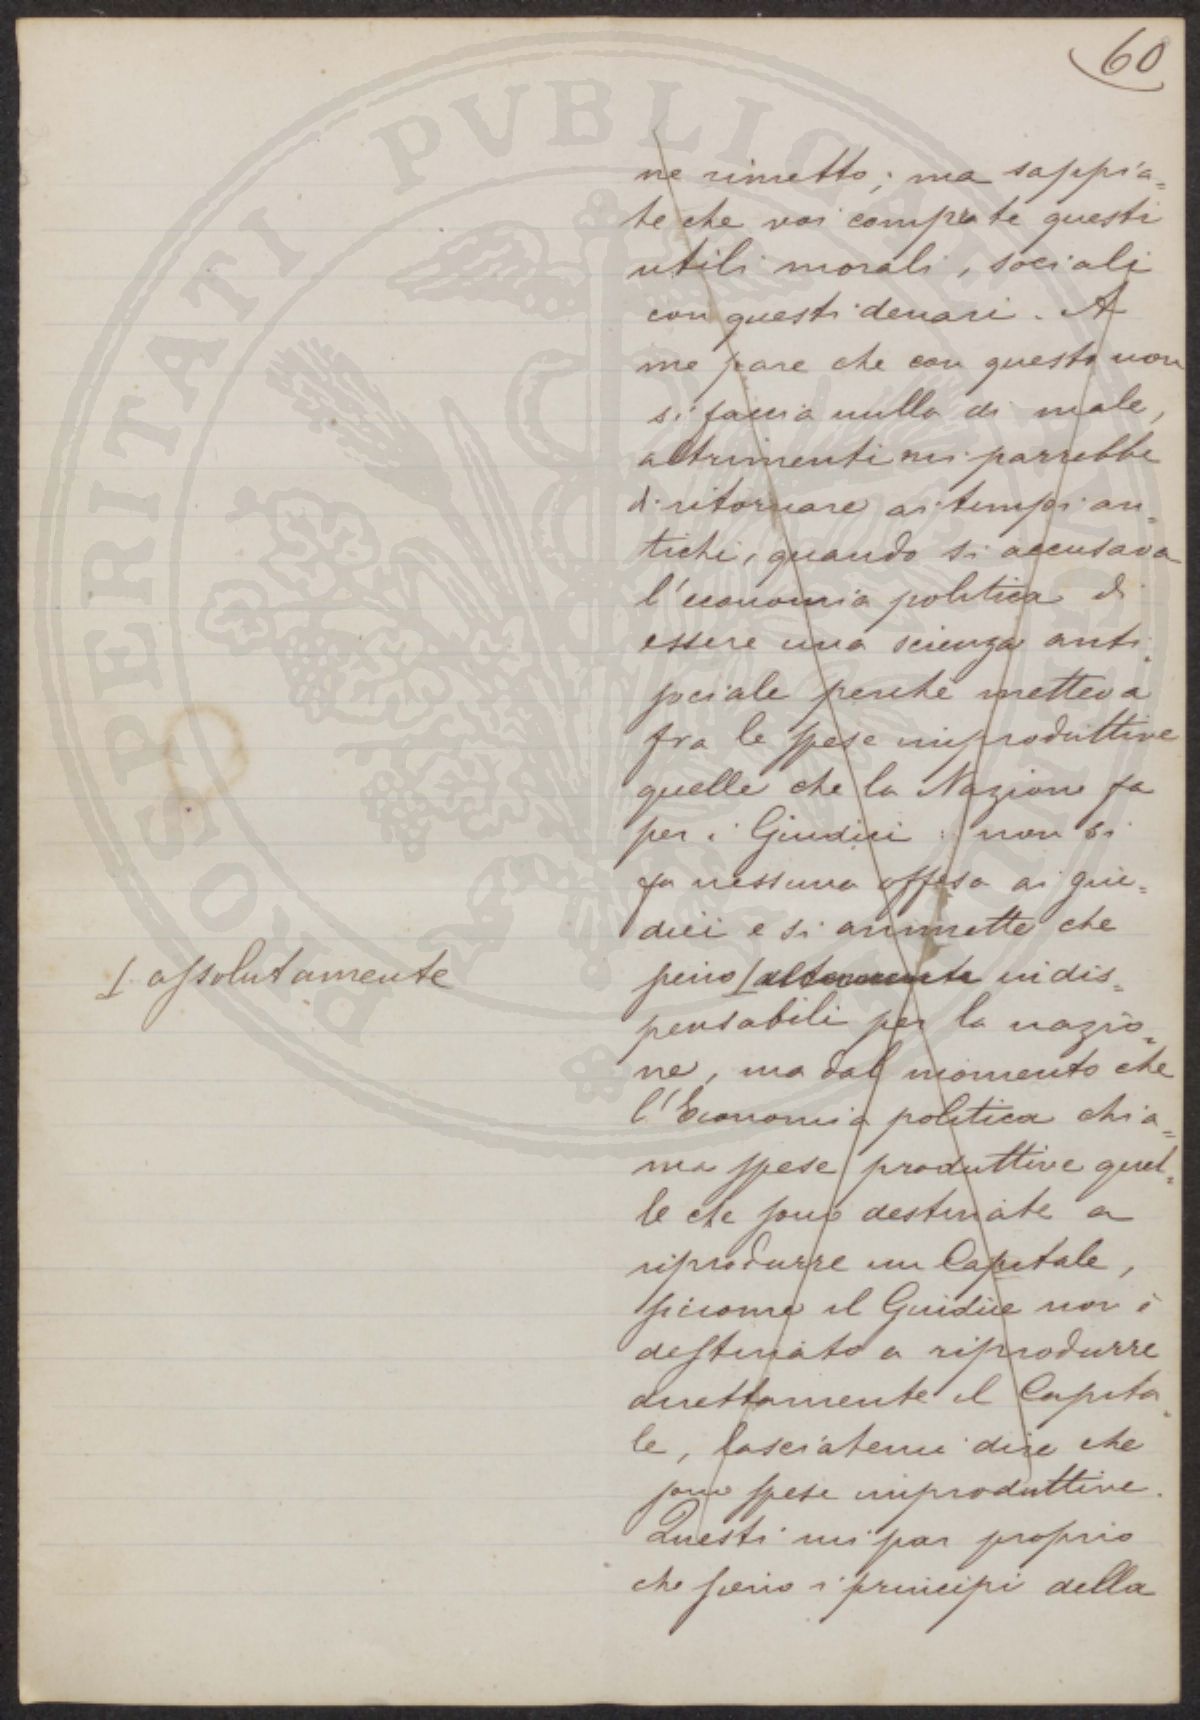 60
ne rimetto; ma sappia=
te che voi comprate questi
utili morali, sociali
con questi denari. A
me pare che con questo non
si faccia nulla di male,
altrimenti mi parrebbe
di ritornare ai tempi an=
tichi, quando si accusava
l'economia politica di
essere una scienza anti
sociale perchè metteva
fra le spese improduttive
quelle che la Nazione fa
per i Giudici: non si
fa nessuna offesa ai giu=
dici e si ammette che
sieno indis=
1 assolutamente
pensabili per la nazio=
ne, ma dal momento che
l'Economia politica chia=
ma spese produttive quel=
le che sono destinate a
riprodurre un Capitale,
siccome il Giudice non è
destinato a riprodurre
direttamente il Capita=
le, lasciatemi dire che
sono spese improduttive.
Questi mi par proprio
che sieno i principi della
PROSPERITATI PVBLICAE AVGENDAE